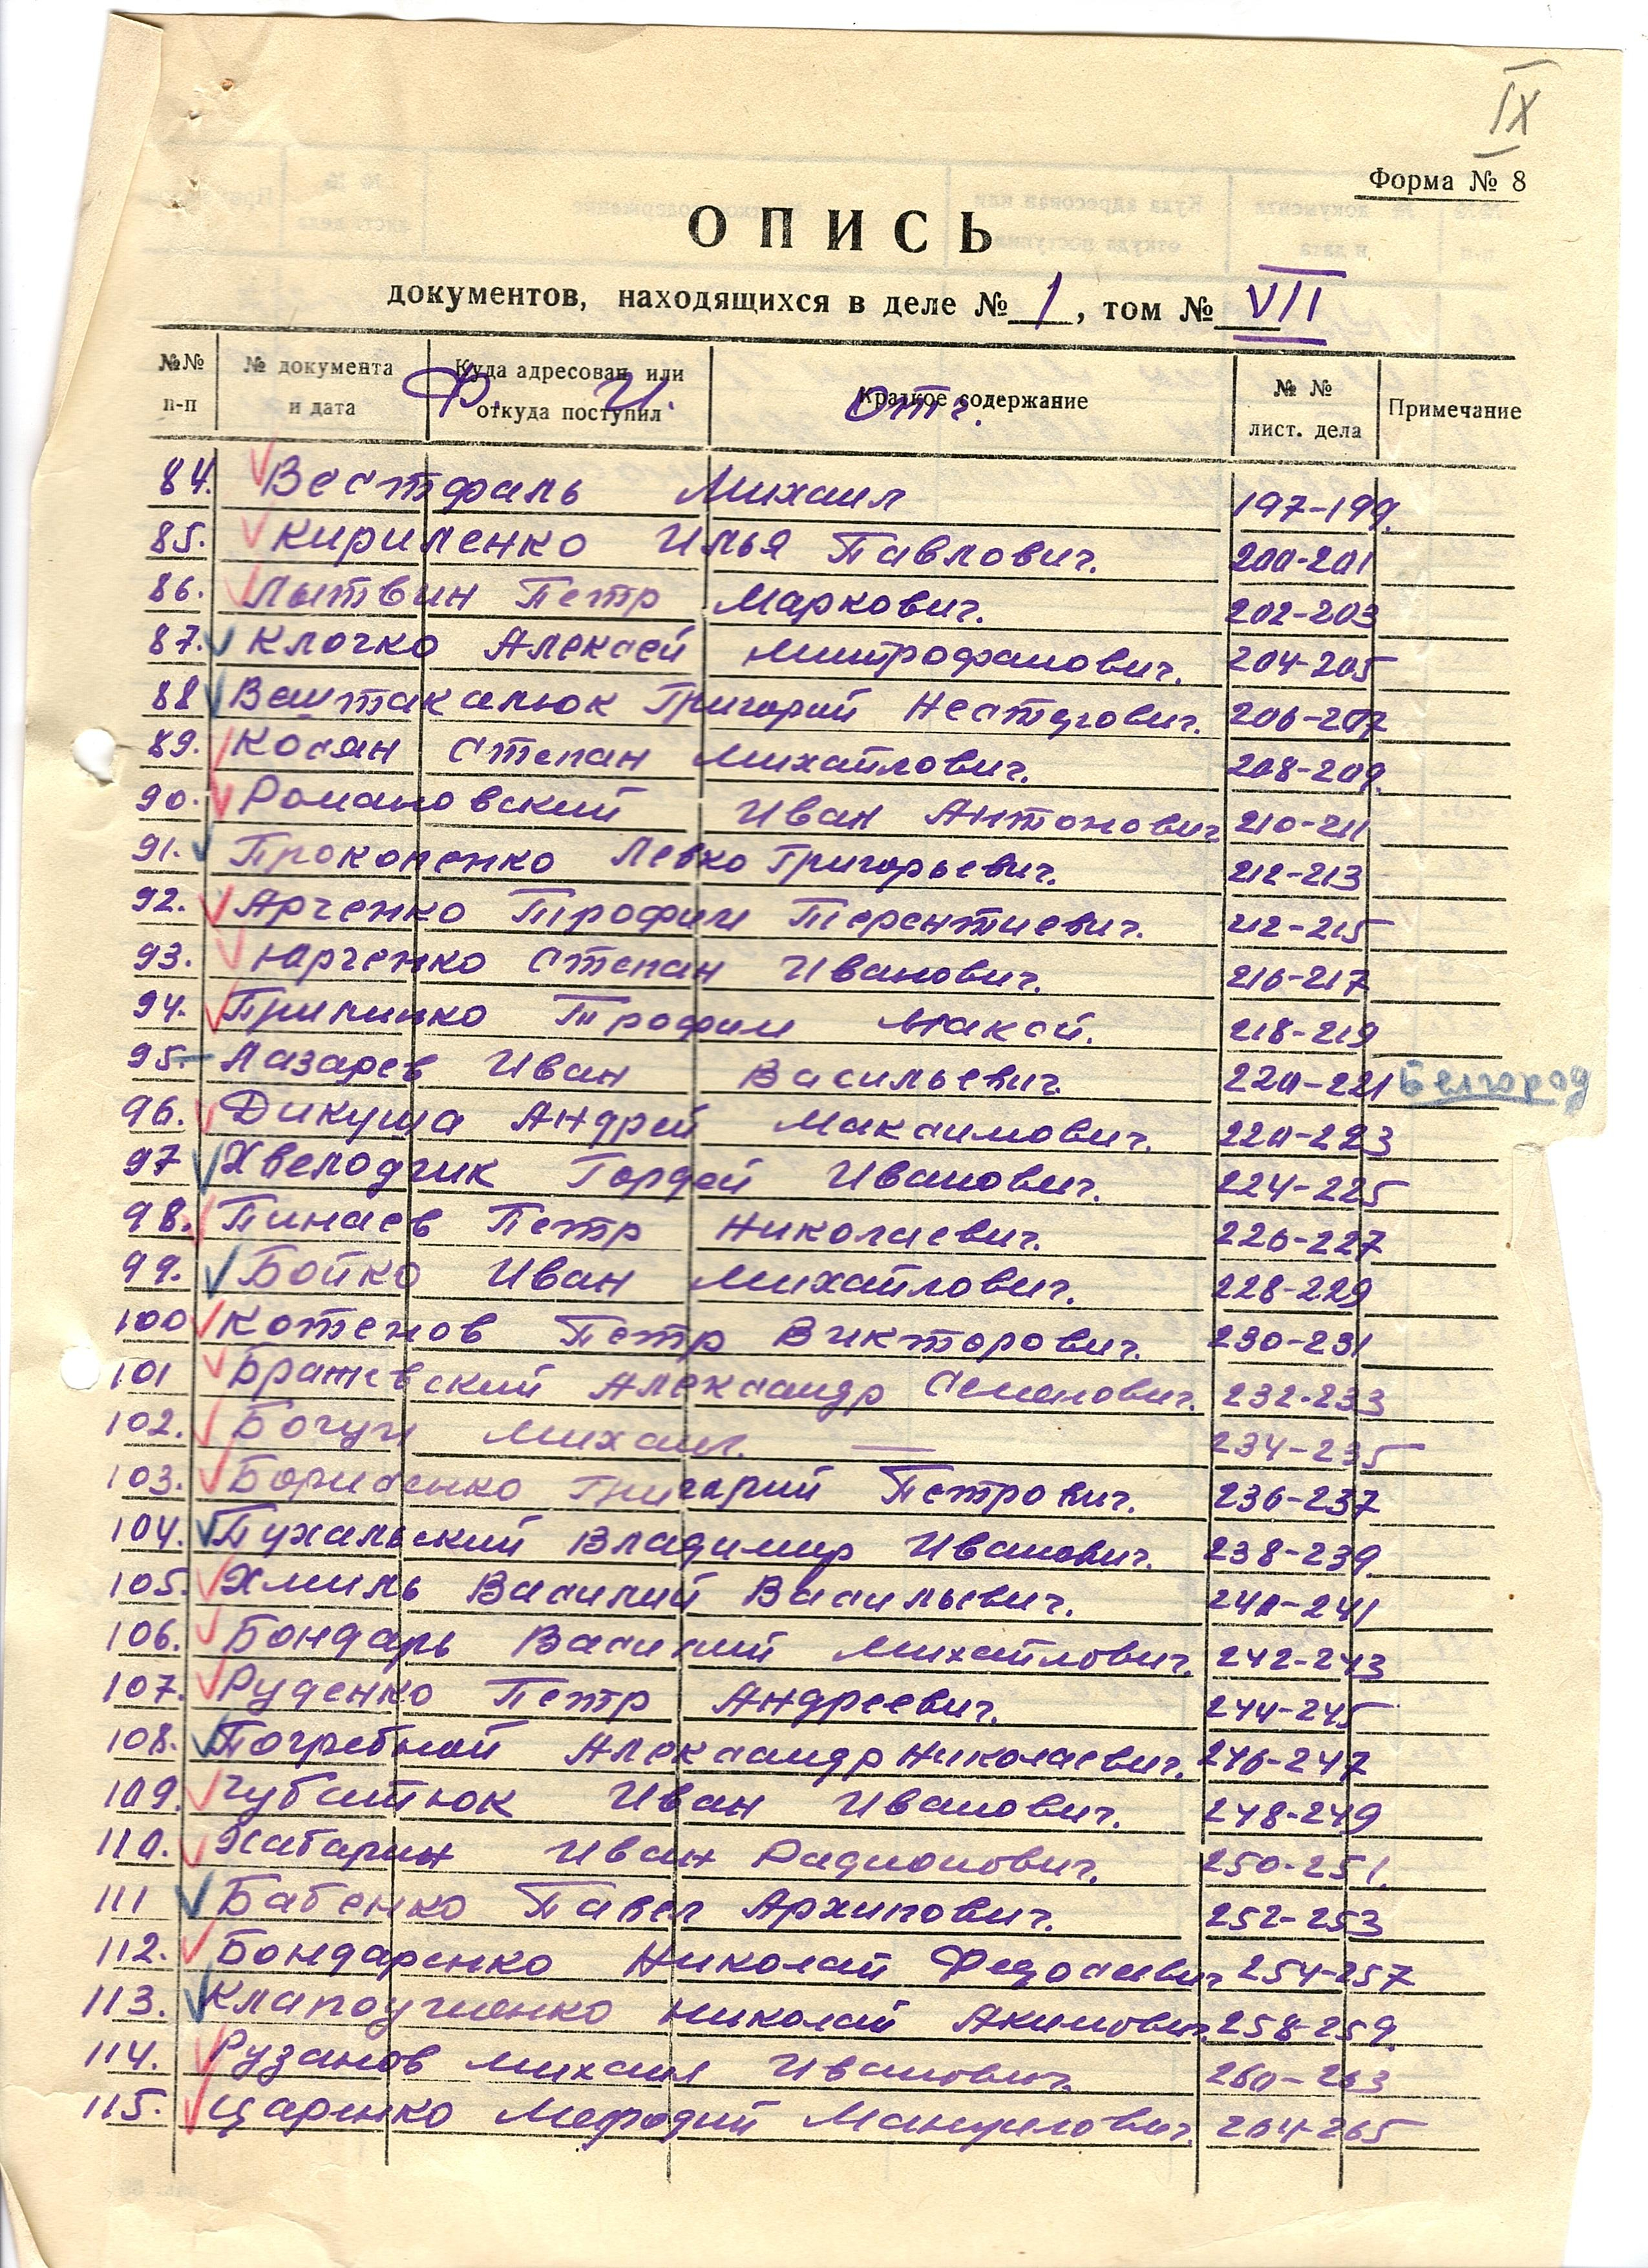 IX
Форма № 8
ОПИСЬ
документов, находящихся в деле № 1, том № VII
№№ п-п № документа и дата Куда адресован или откуда поступил Краткое содержание № № лист. дела Примечание
Ф. И. Отч.
84. Вестфаль Михаил 197-199.
85. Кириленко Илья Павлович. 200-201
86. Лытвин Петр Маркович. 202-203
87. Клочко Алексей Митрофанович. 204-205
88 Ваштакалюк Григорий Нестерович. 206-207
89. Косян Степан Михайлович. 208-209.
90. Романовский Иван Антонович 210-211
91. Прокопенко Левко Григорьевич. 212-213
92. Арченко Трофим Терентиевич. 212-215
93. Юрченко Степан Иванович. 216-217
94. Трофим 218-219
95. Лазарев Иван Васильевич. 220-221 Белгород
96. Дикуша Андрей Максимович. 220-223
97 Хвелодчик Гордей Иванович. 224-225
98. Пинаев Петр Николаевич. 226-227
99. Бойко Иван Михайлович. 228-229
100 Котенов Петр Викторович. 230-231
101 Бражевский Александр Семенович. 232-233
102. Богун Михаил. — 234-235
103. Борисенко Григорий Петрович. 236-237
104. Пухальский Владимир Иванович. 238-239.
105. Хмиль Василий Васильевич. 240-241
106. Бондарь Василий Михайлович. 242-243
107. Руденко Петр Андреевич. 244-245
108. Погребной Александр Николаевич. 246-247
109. Чубатюк Иван Иванович. 248-249
110. Хабарин Иван Радионович. 250-251.
111 Бабенко Павел Архипович. 252-253
112. Бондаренко Николай Федосеевич 254-257
113. Николай Акимович 258-259.
114. Рузанов Михаил Иванович. 260-263
115. Царенко Мефодий Мануилович. 264-265